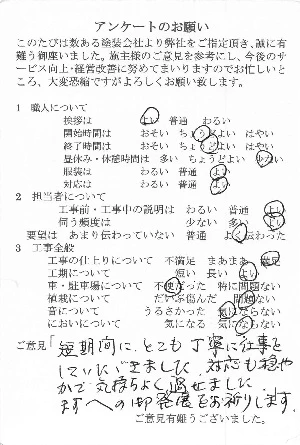 アンケートのお願い
このたびは数ある塗装会社より弊社をご指定頂き、誠に有
難う御座いました。施主様のご意見を参考にし、今後のサ
ービス向上・経営改善に努めてまいりますのでお忙しいと
ころ、大変恐縮ですがよろしくお願い致します。
1 職人について
挨拶は よい 普通 わるい
開始時間は おそい ちょうどよい はやい
終了時間は おそい ちょうどよい はやい
昼休み・休憩時間は 多い ちょうどよい 少ない
服装は わるい 普通 よい
対応は わるい 普通 よい
2 担当者について
工事前・工事中の説明は わるい 普通 よい
伺う頻度は 少ない 多い よい
要望は あまり伝わっていない 普通 よく伝わった
3 工事全般
工事の仕上りについて 不満足 まあまあ 満足
工期について 短い 長い よい
車・駐車場について 不便だった 特に問題ない
植栽について だいぶ傷んだ 問題ない
音について うるさかった 気にならない
においについて 気になる 気にならない
ご意見「短期間に、とても丁寧に仕事を
していただきました。対応も穏や
かで気持ちよく過せました。
ますますの御発展をお祈りします。
ご意見有難うございました。